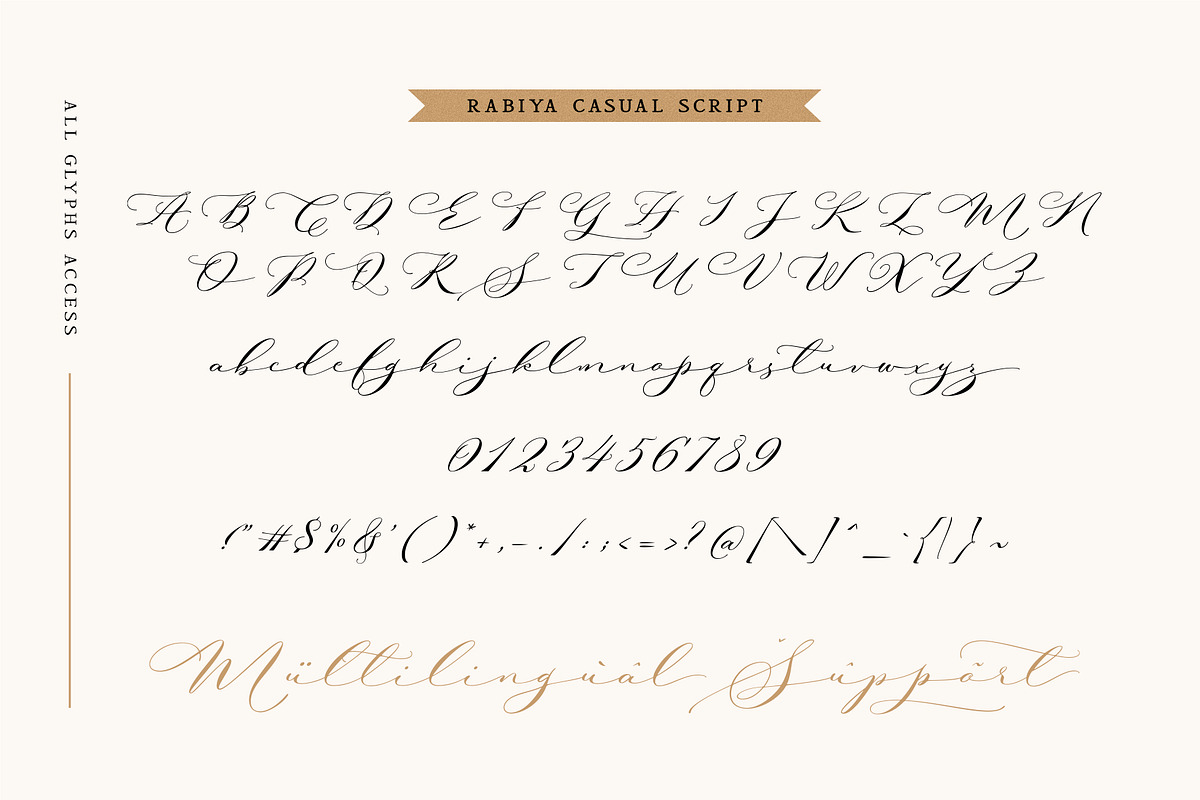 RABIYA CASUAL SCRIPT
ALL GLYPHS ACCESS
A B C D E F G H I J K L M N
O P Q R S T U V W X Y Z
abcdefghijklmnopqrstuvwxyz
0123456789
!"#$%&'()*+,-./:;<=>?@[\]^_`{|}~
Mültilingùâl Šûppõrt